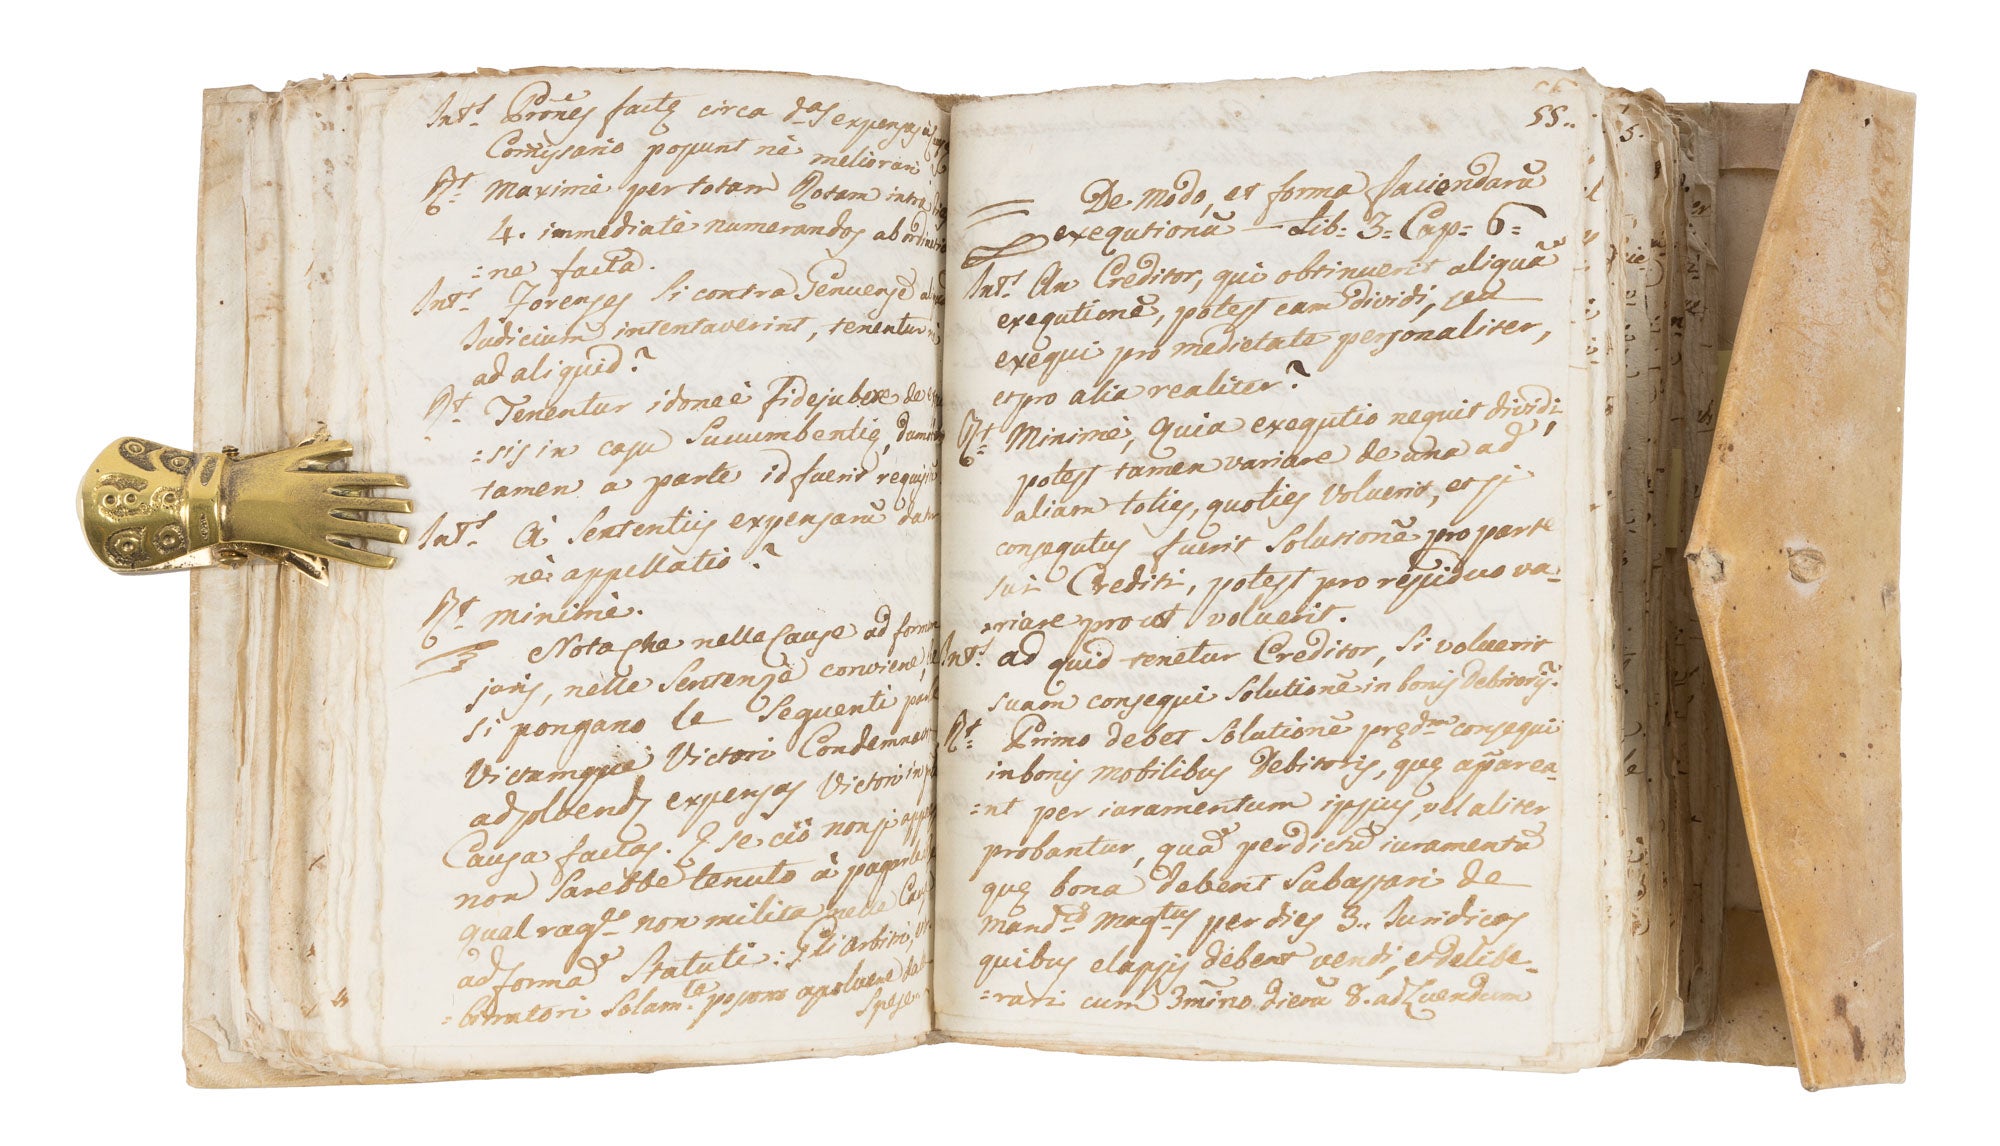 Int.s Pronẽs factę circa d.as expensas à
Comissario possunt nè meliorari
R.t Maximè per totam Rotam intra dies
4. immediatè numerandos ab ordinatio
=ne facta.
Int.s Forenses si contra Genuensẽ
Iudicium intentaverint, tenentur nè
ad aliquid?
R.t Tenentur idoneè Fidejubere de
=sis in casu succumbentię, dum
tamen a parte id fuerit requisitũ
Int.s A Sententiis expensarũ datur
nè appellatio?
R.t minimè.
Nota che nelle Cause ad formam
juris, nelle Sentenze conviene, che
si pongano le seguenti parole
Victumque Victori Condemnamus
ad solvends expensas Victori in
Causa factas. E se ciò non si
non sarebbe tenuto à pagarle
qual rag.e non milita nelle Cause
ad formã Statuti: Gli arbitri,
=bitratori solam.te possono assolvere dalle
Spese
55..
De modo, et forma faciendarũ
exequtionũ — Lib= 3= Cap= 6=
Int.s An Creditor, qui obtinuerit aliquã
exequtionẽ, potest eam dividi, seu
exequi pro medietate personaliter,
et pro alia realiter?
R.t Minimè, Quia exequtio nequit dividi,
potest tamen variare de una ad
aliam toties, quoties voluerit, et si
consequtus fuerit solutionẽ pro parte
sui Crediti, potest pro residuo va=
=riare pro ut voluerit.
Int.s ad quid tenetur Creditor, si voluerit
suam consequi solutionẽ in bonis Debitoris?
R.t Primo debet solutionẽ pręd.am consequi
in bonis mobilibus Debitoris, quę aparea=
=nt per iuramentum ipsius, vel aliter
probantur, quã per dictũ iuramentũ
quę bona debent subastari de
mand.to Mag.tus per dies 3.. Iuridicos
quibus elapsis debent vendi, et delibe=
=rari cum 3mino dierũ 8. ad luendum